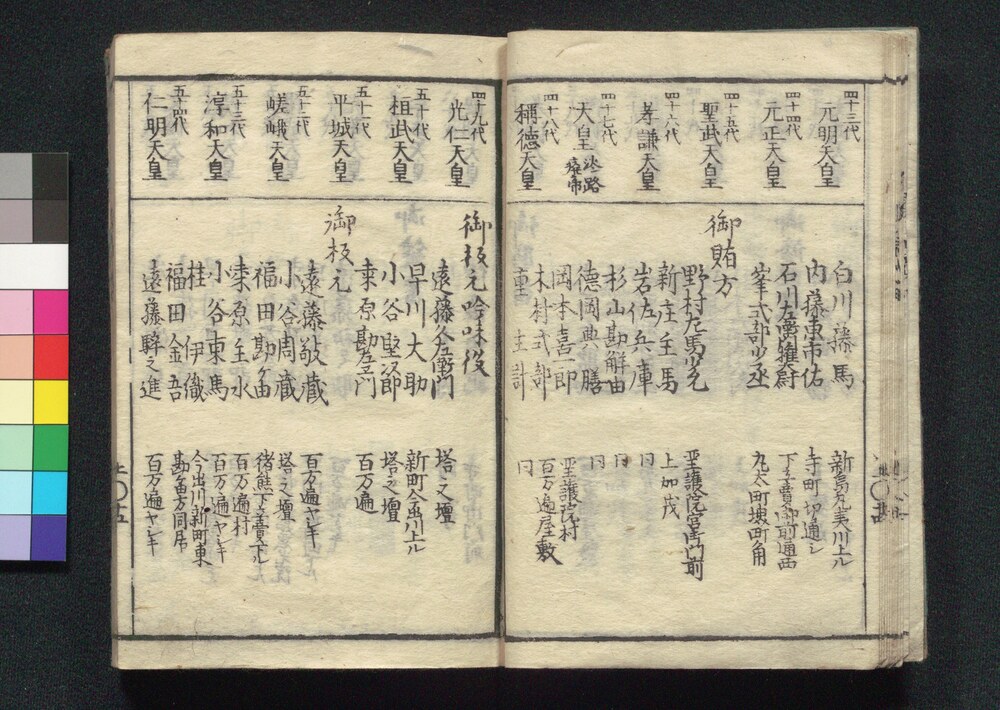 四十三代
元明天皇
四十四代
元正天皇
四十五代
聖武天皇
四十六代
孝謙天皇
四十七代
大皇 淡路廢帝
四十八代
稱德天皇
白川 播馬
内藤東市佑
石川左衛門獲尉
峯式部少丞
御賄方
野村左馬少允
新庄主馬
岩佐兵庫
杉山勘解由
德岡典膳
岡本喜一郎
木村式部
重 主計
寺町切通シ
下立賣御前通西
丸太町堺町角
聖護院宮御門前
上加茂
同
同
同
聖護院村
百万遍屋敷
同
四十九代
光仁天皇
五十代
桓武天皇
五十一代
平城天皇
五十二代
嵯峨天皇
五十三代
淳和天皇
五十四代
仁明天皇
御板元吟味役
遠藤久左衛門
早川大助
小谷堅次郎
桒原勘左門
御板元
遠藤敬藏
小谷周藏
福田勘ケ由
桒原主水
小谷東馬
桂 伊織
福田金吾
遠藤騂之進
塔之壇
新町今出川上ル
塔之壇
百万遍
百万遍ヤシキ
塔之壇
猪熊下立賣下ル
百万遍村
百万遍ヤシキ
今出川新町東
勘ケ由方同居
百万遍ヤシキ
上〇十五